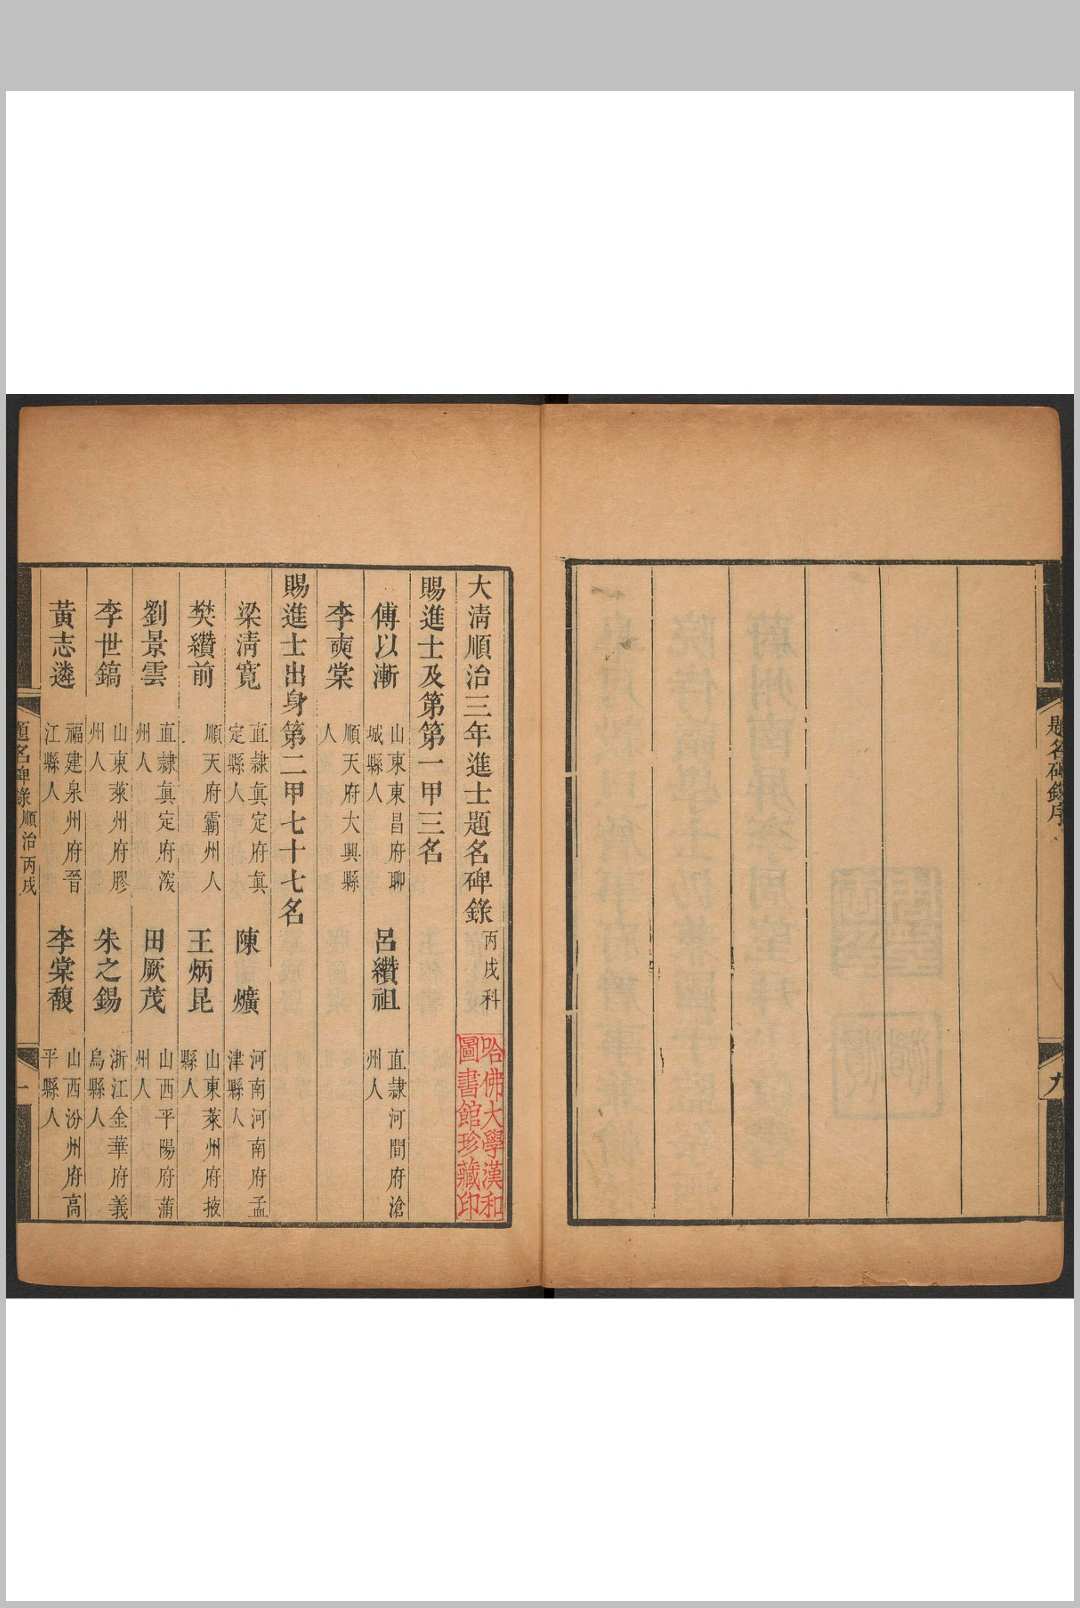 題名碑錄序
九
大淸順治三年進士題名碑錄丙戌科
哈佛大學漢和
圖書館珍藏印
賜進士及第第一甲三名
傅以漸 山東東昌府聊城縣人 呂纘祖 直隸河間府滄州人
李奭棠 順天府大興縣人
賜進士出身第二甲七十七名
梁淸寬 直隸眞定府眞定縣人 陳爌 河南河南府孟津縣人
樊纘前 順天府霸州人 王炳昆 山東萊州府掖縣人
劉景雲 直隸眞定府滾州人 田厥茂 山西平陽府蒲州人
李世鎬 山東萊州府膠州人 朱之錫 浙江金華府義烏縣人
黃志遴 福建泉州府晉江縣人 李棠馥 山西汾州府高平縣人
題名碑錄 順治丙戌
一